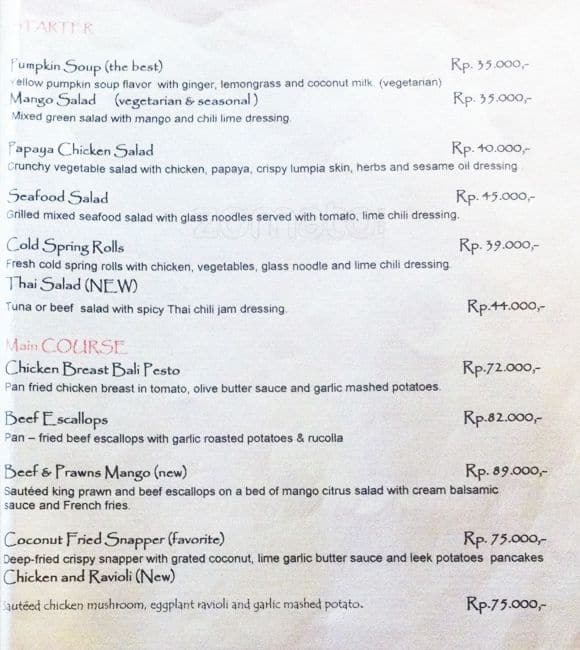 STARTER
Pumpkin Soup (the best) Rp. 35.000,-
Yellow pumpkin soup flavor with ginger, lemongrass and coconut milk. (vegetarian)
Mango Salad (vegetarian & seasonal) Rp. 35.000,-
Mixed green salad with mango and chili lime dressing.
Papaya Chicken Salad Rp. 40.000,-
Crunchy vegetable salad with chicken, papaya, crispy lumpia skin, herbs and sesame oil dressing
Seafood Salad Rp. 45.000,-
Grilled mixed seafood salad with glass noodles served with tomato, lime chili dressing.
zomato
Cold Spring Rolls Rp. 39.000,-
Fresh cold spring rolls with chicken, vegetables, glass noodle and lime chili dressing.
Thai Salad (NEW)
Tuna or beef salad with spicy Thai chili jam dressing. Rp.44.000,-
Main COURSE
Chicken Breast Bali Pesto Rp.72.000,-
Pan fried chicken breast in tomato, olive butter sauce and garlic mashed potatoes.
Beef Escallops Rp.82.000,-
Pan – fried beef escallops with garlic roasted potatoes & rucolla
Beef & Prawns Mango (new) Rp. 89.000,-
Sautéed king prawn and beef escallops on a bed of mango citrus salad with cream balsamic
sauce and French fries.
Coconut Fried Snapper (favorite) Rp. 75.000,-
Deep-fried crispy snapper with grated coconut, lime garlic butter sauce and leek potatoes pancakes
Chicken and Ravioli (New)
Sautéed chicken mushroom, eggplant ravioli and garlic mashed potato. Rp.75.000,-